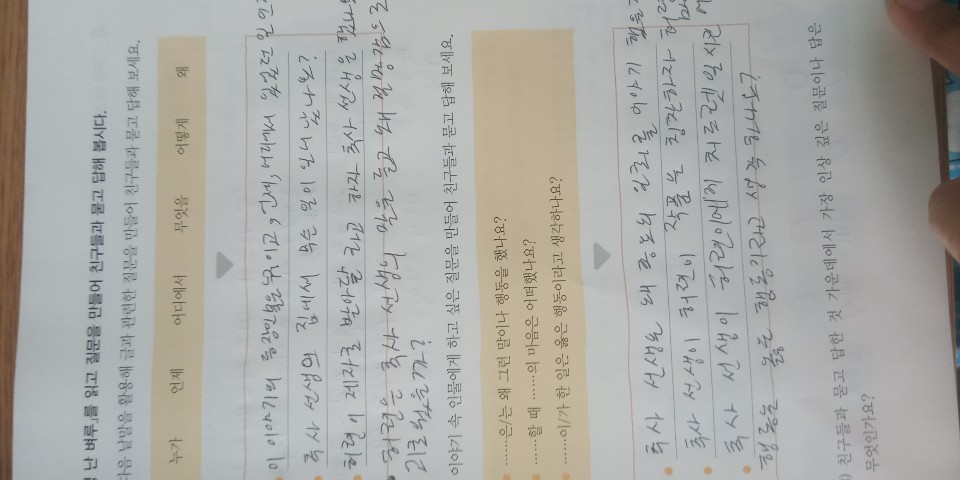 난 벼루」를 읽고 질문을 만들어 친구들과 묻고 답해 봅시다.
다음 낱말을 활용해 글과 관련한 질문을 만들어 친구들과 묻고 답해 보세요.
누가 언제 어디에서 무엇을 어떻게 왜
이 이야기의 등장인물은 누구이고, 언제, 어디에서 있었던 일인가
추사 선생의 집에서 무슨 일이 일어났나요?
허련이 제자로 받아달라고 하자 추사 선생은
허련은 추사 선생의 말을 듣고 왜 절망감을
이야기 속 인물에게 하고 싶은 질문을 만들어 친구들과 묻고 답해 보세요.
……은/는 왜 그런 말이나 행동을 했나요?
……할 때 ……의 마음은 어떠했나요?
……이/가 한 일은 옳은 행동이라고 생각하나요?
추사 선생은 왜 이야기
추사 선생이 허련이 작품 칭찬하자
추사 선생이 허련에게 저지른 일
행동은 옳은 행동이라고 생각 하나요?
친구들과 묻고 답한 것 가운데에서 가장 인상 깊은 질문이나 답은
무엇인가요?